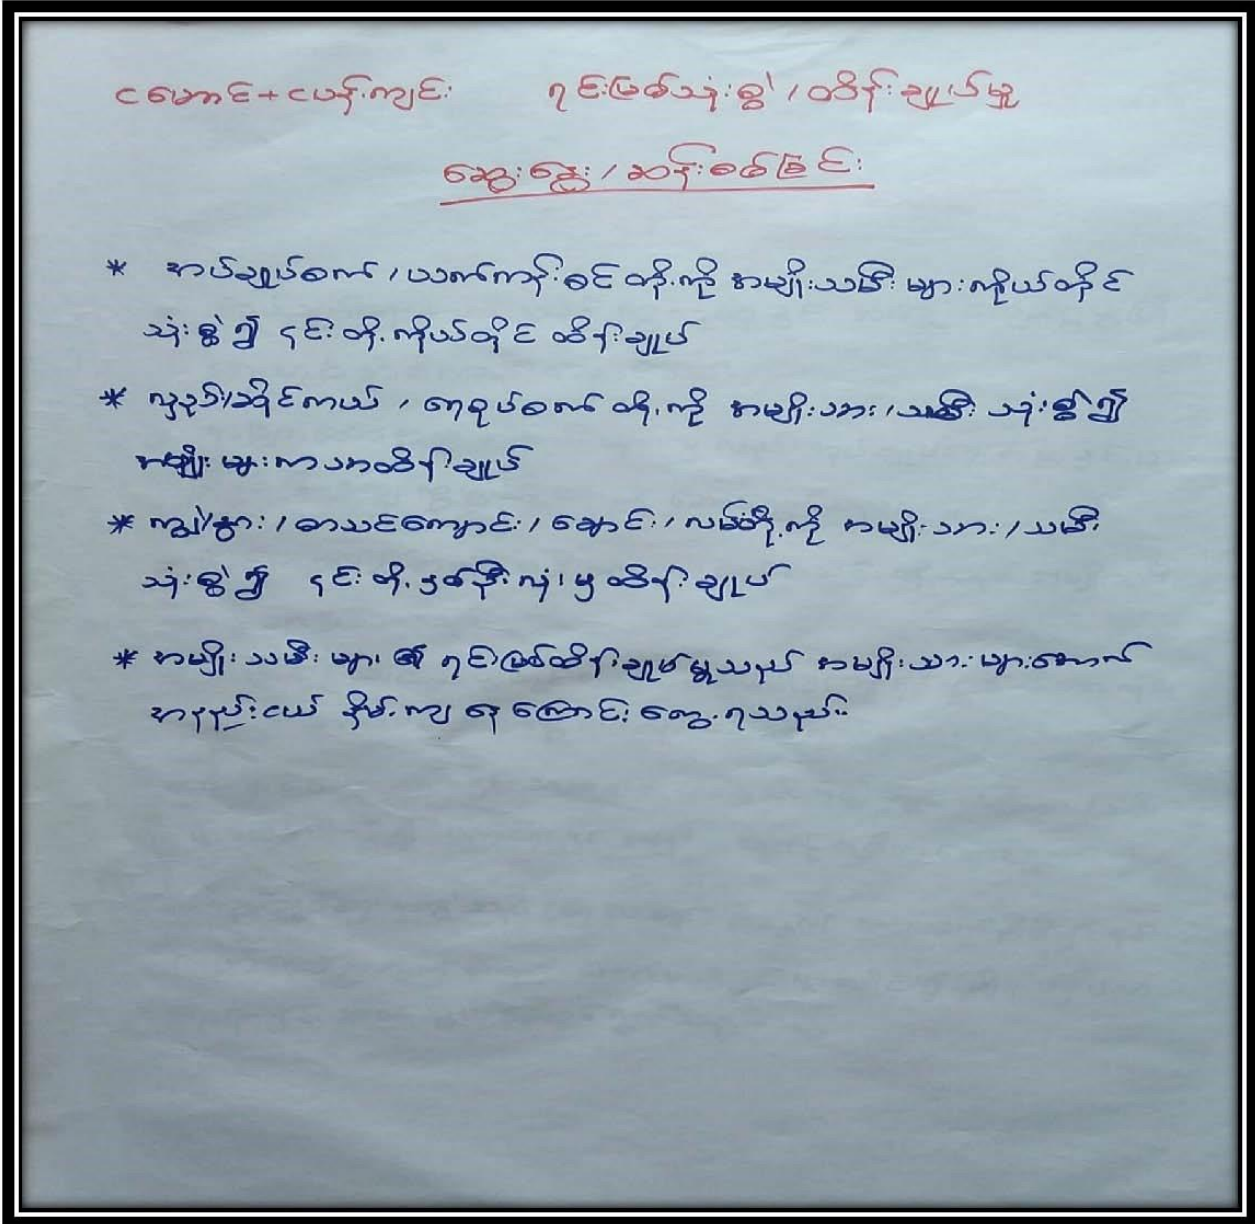 ငမောင်း+ငပန်းကျင်း ရင်းမြစ်သုံးစွဲ/ထိန်းချုပ်မှု
ဆွေးနွေး/ဆန်းစစ်ခြင်း
* အပ်ချုပ်စက်/ယက်ကန်းစင် တို့ကို အမျိုးသမီး များကိုယ်တိုင်
သုံးစွဲ၍ ၎င်းတို့ကိုယ်တိုင် ထိန်းချုပ်
* လှည်း/ဆိုင်ကယ်/ရေစုပ်စက် တို့ကို အမျိုးသား/သမီး သုံးစွဲ၍
အမျိုး များကသာထိန်းချုပ်
* ကျွဲ/နွား/စာသင်ကျောင်း/ချောင်း/လမ်းတို့ကို အမျိုးသား/သမီး
သုံးစွဲ၍ ၎င်းတို့နှစ်ဦးလုံးမှ ထိန်းချုပ်
* အမျိုးသမီး များ၏ ရင်းမြစ်ထိန်းချုပ်မှုသည် အမျိုးသားများအောက်
အနည်းငယ် နိမ့်ကျ နေကြောင်း တွေ့ရသည်။